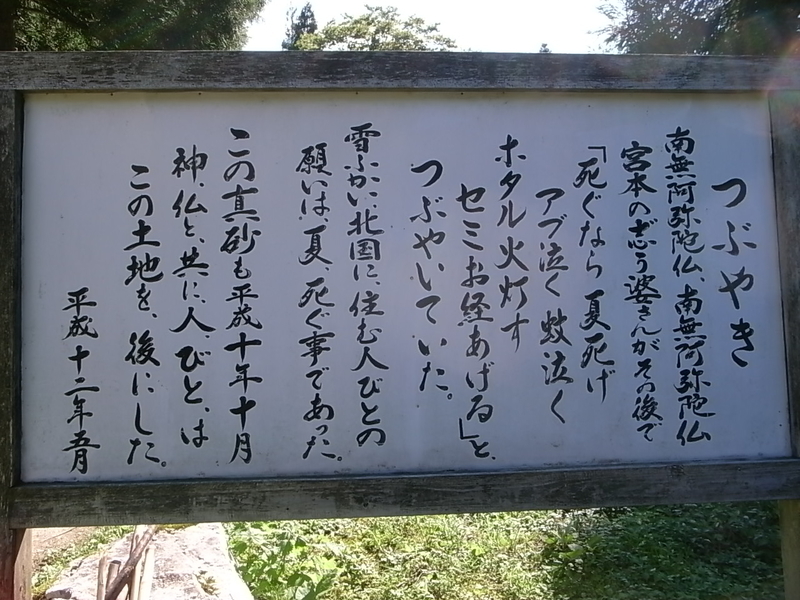 つぶやき
南無阿弥陀仏、南無阿弥陀仏
宮本の志う婆さんがその後で
「死ぐなら 夏死げ
アブ泣く 蚊泣く
ホタル火灯す
セミお経あげる」と、
つぶやいていた。
雪ふかい、北国に、住む人びとの
願いは、夏、死ぐ事であった。
この真砂も平成十年十月
神、仏と、共に、人、びと、は
この土地を、後にした。
平成十二年五月